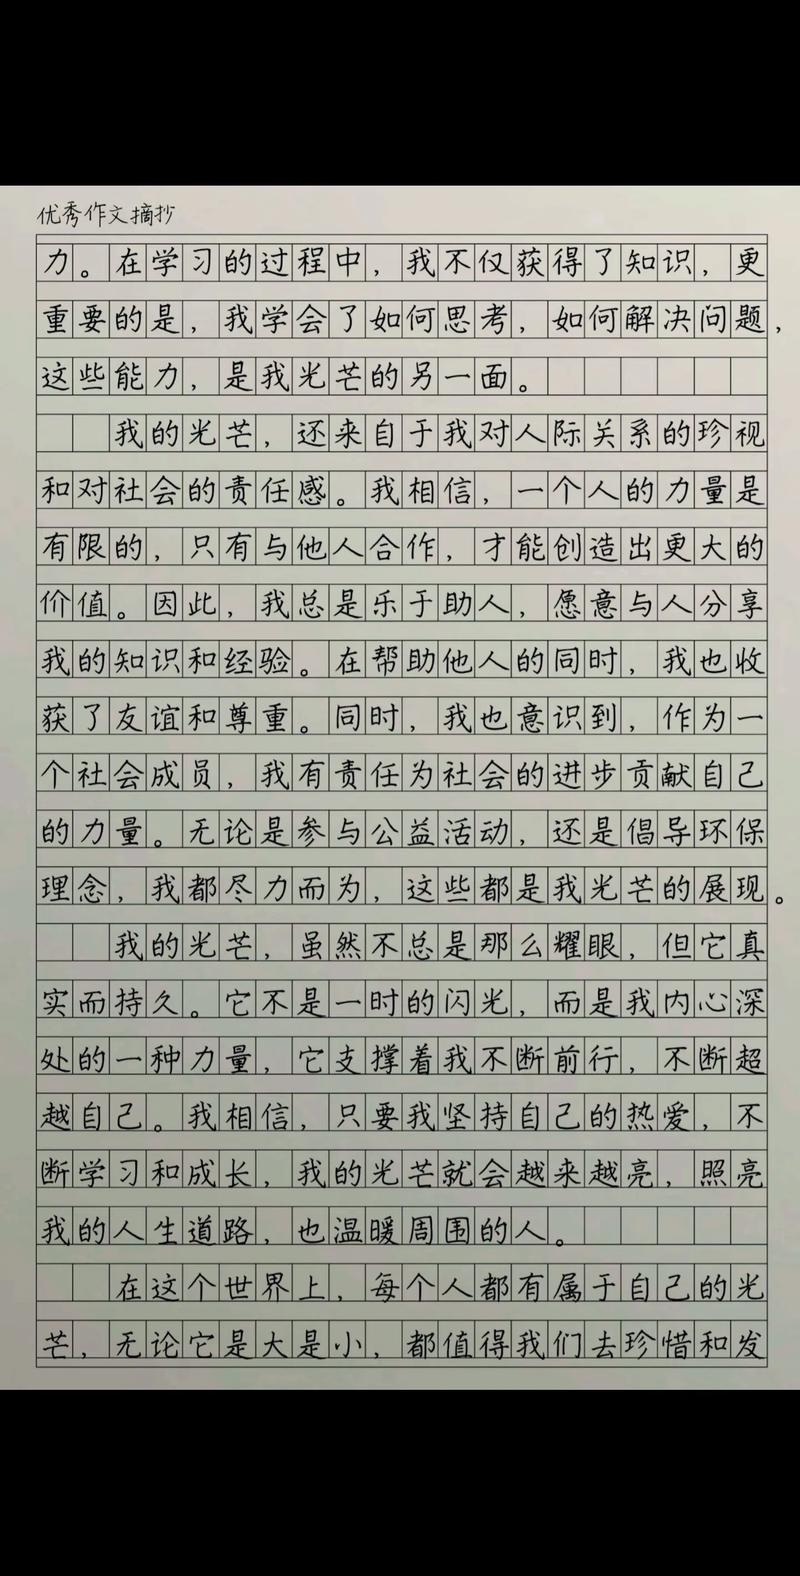 优秀作文摘抄
力。在学习的过程中，我不仅获得了知识，更
重要的是，我学会了如何思考，如何解决问题，
这些能力，是我光芒的另一面。
我的光芒，还来自于我对人际关系的珍视
和对社会的责任感。我相信，一个人的力量是
有限的，只有与他人合作，才能创造出更大的
价值。因此，我总是乐于助人，愿意与人分享
我的知识和经验。在帮助他人的同时，我也收
获了友谊和尊重。同时，我也意识到，作为一
个社会成员，我有责任为社会的进步贡献自己
的力量。无论是参与公益活动，还是倡导环保
理念，我都尽力而为，这些都是我光芒的展现。
我的光芒，虽然不总是那么耀眼，但它真
实而持久。它不是一时的闪光，而是我内心深
处的一种力量，它支撑着我不断前行，不断超
越自己。我相信，只要我坚持自己的热爱，不
断学习和成长，我的光芒就会越来越亮，照亮
我的人生道路，也温暖周围的人。
在这个世界上，每个人都有属于自己的光
芒，无论它是大是小，都值得我们去珍惜和发